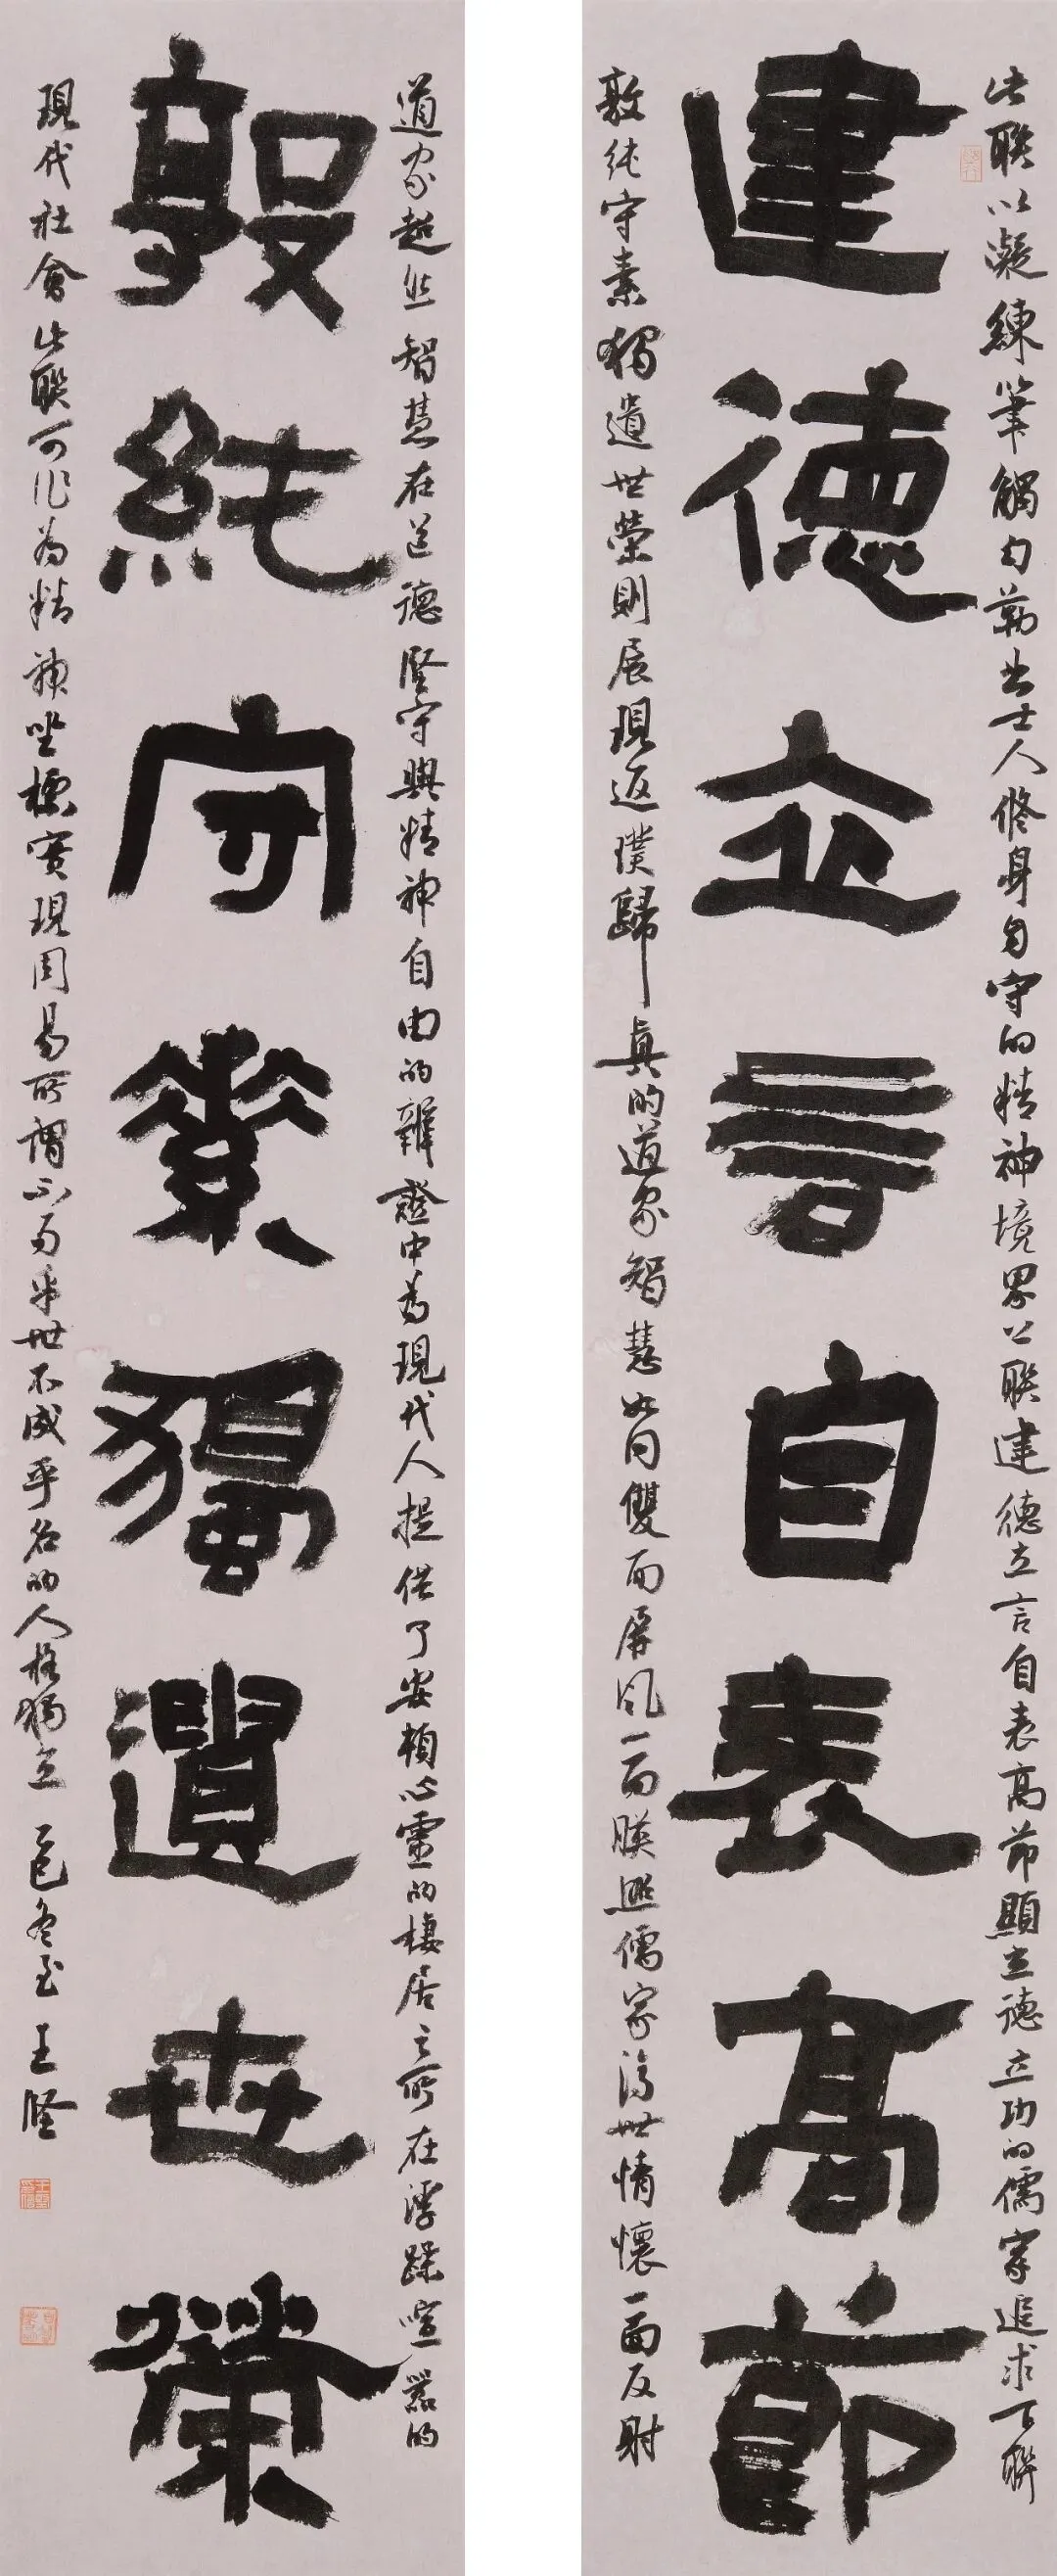 建德立言自表高節
敦純守素獨遺世榮
此聯以凝練筆觸勾勒出士人修身自守的精神境界上聯建德立言自表高節顯立德立功的儒家追求下聯
敦純守素獨遺世榮則展現返璞歸真的道家智慧如同雙面屏風一面映照儒家濟世情懷一面反射
道家超然智慧在道德堅守與精神自由的辯證中為現代人提供了安頓心靈的棲居之所在浮躁喧囂的
現代社會此聯可作為精神坐標實現周易所謂不易乎世不成乎名的人格獨立 乙巳冬至 王堅